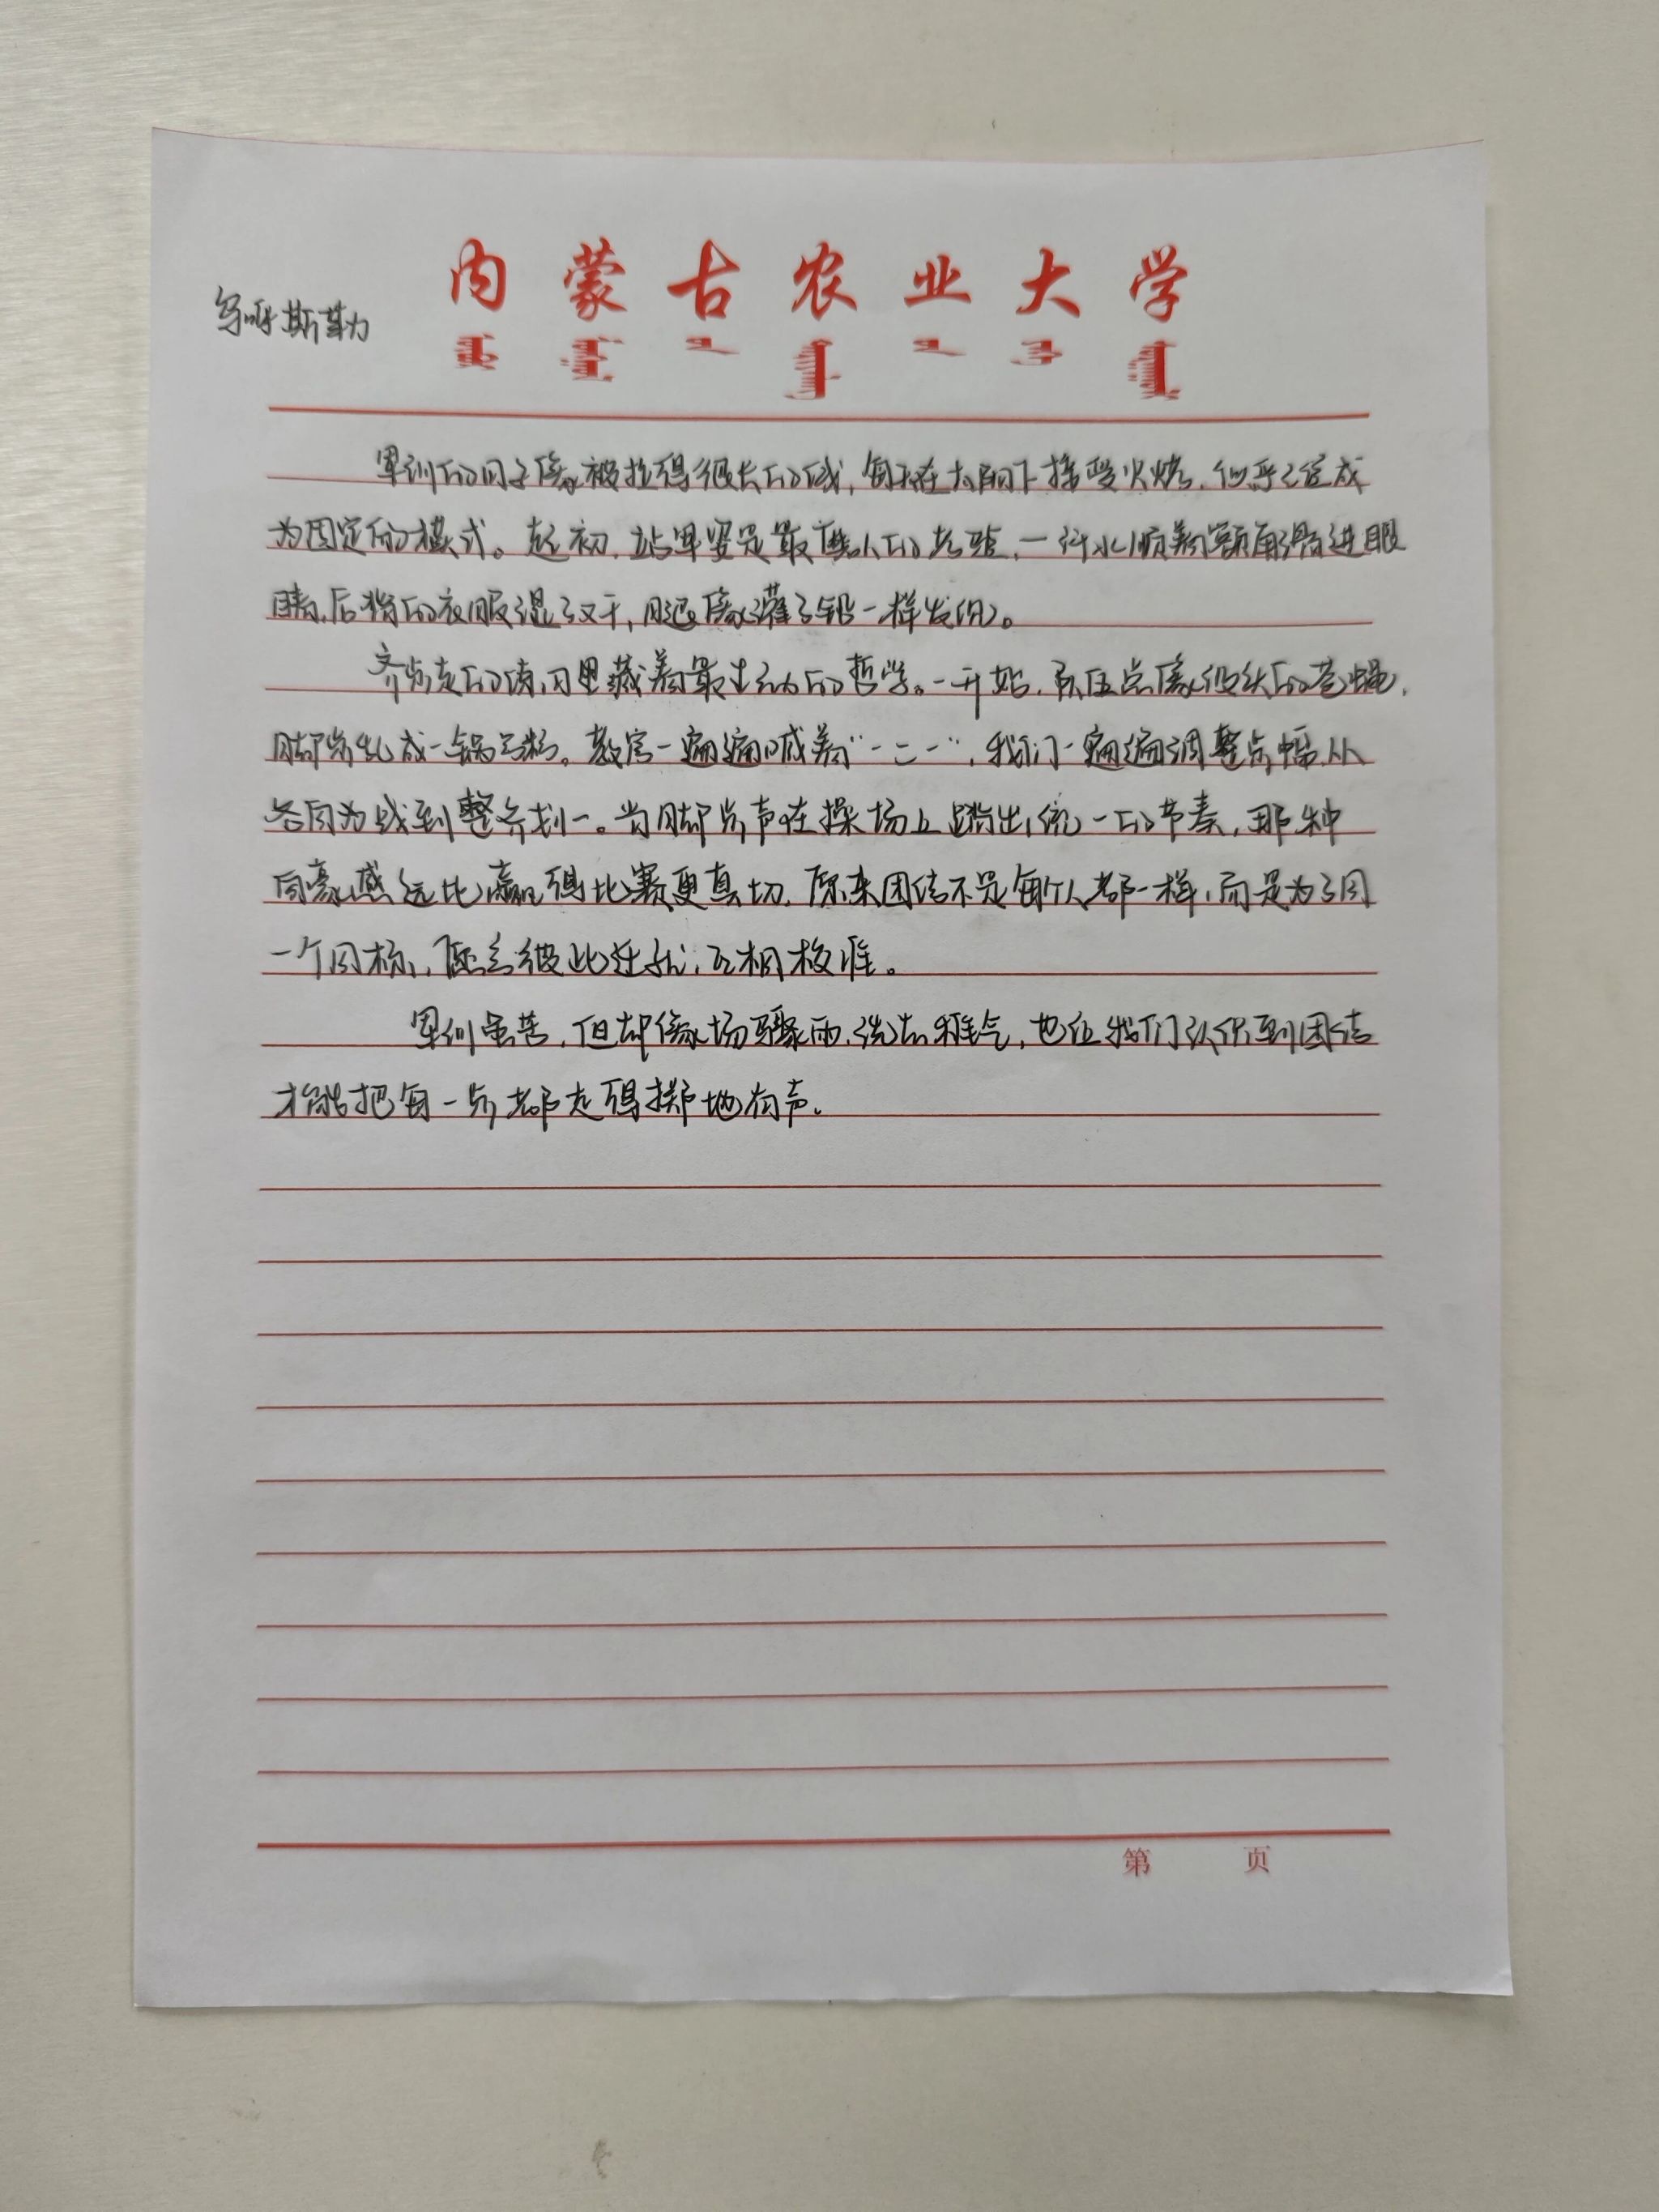 内蒙古农业大学
乌呼斯勒
军训的日子像被拉得很长的线，每天在太阳下接受火烤，似乎已经成
为固定的模式。起初，站军姿是最磨人的考验，一汗水顺着额角滑进眼
睛，后背的衣服湿了又干，腿像灌了铅一样发沉。
齐步走的练习里藏着最生动的哲学。一开始，队伍总像没头的苍蝇，
脚步乱成一锅粥。教官一遍遍喊着“一二一”，我们一遍遍调整步幅，从
各自为战到整齐划一。当脚步声在操场上踏出统一的节奏，那种
自豪感远比赢得比赛更真切，原来团结不是每个人都一样，而是为了同
一个目标，愿意彼此迁就，互相校准。
军训虽苦，但却像场骤雨，洗去稚气，也让我们认识到团结
才能把每一步都走得掷地有声。
第 页